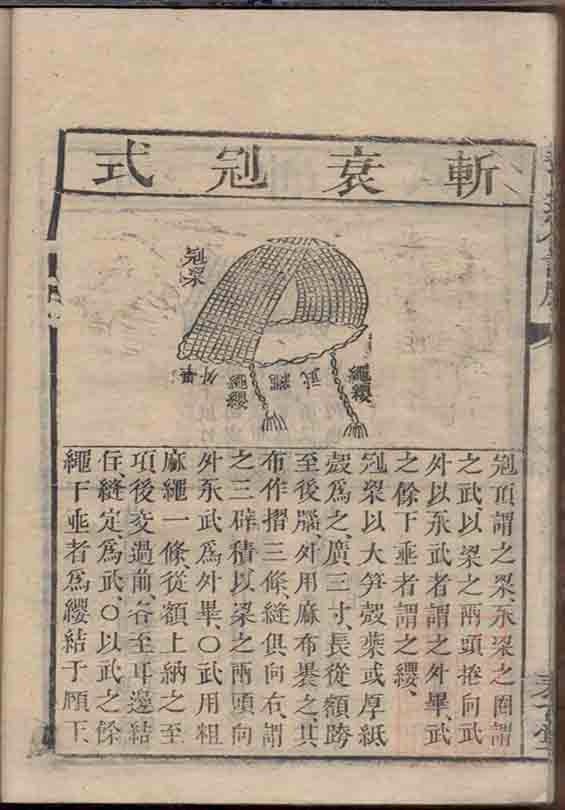 斬衰冠式
冠梁
外畢
繩纓
武繩
繩纓
冠頂謂之梁、承梁之圈謂
之武、以梁之兩頭捲向武
外以承武者謂之外畢、武
之餘下垂者謂之纓、
冠梁以大笋殼柴或厚紙
殼為之、廣三寸、長從額跨
至後腦、外用麻布畧之、其
布作摺三條、縫俱向右、謂
之三辟積、以梁之兩頭向
外承武為外畢、○武用粗
麻繩一條、從額上納之至
項後交過前、各至耳邊結
住、縫定、為武、○以武之餘
繩下垂者為纓結于頤下、